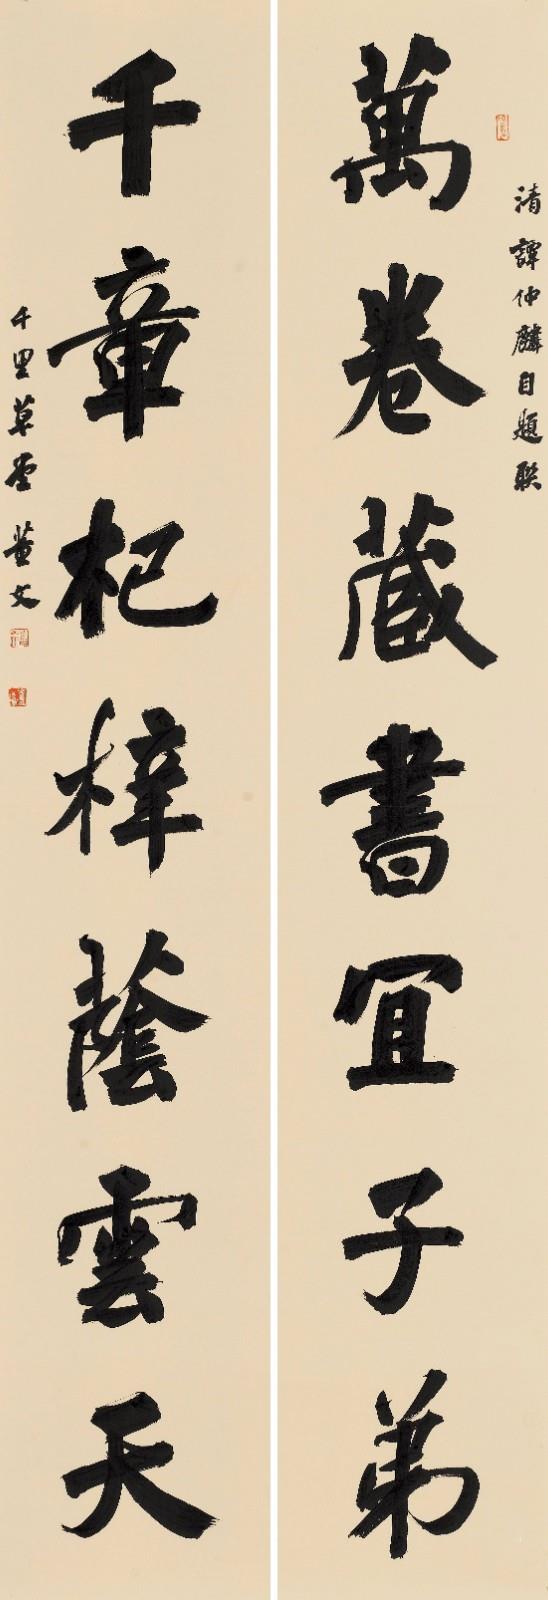 清譚仲麟自題聯
萬卷藏書宜子弟
千章杞梓蔭雲天
千里草堂董文